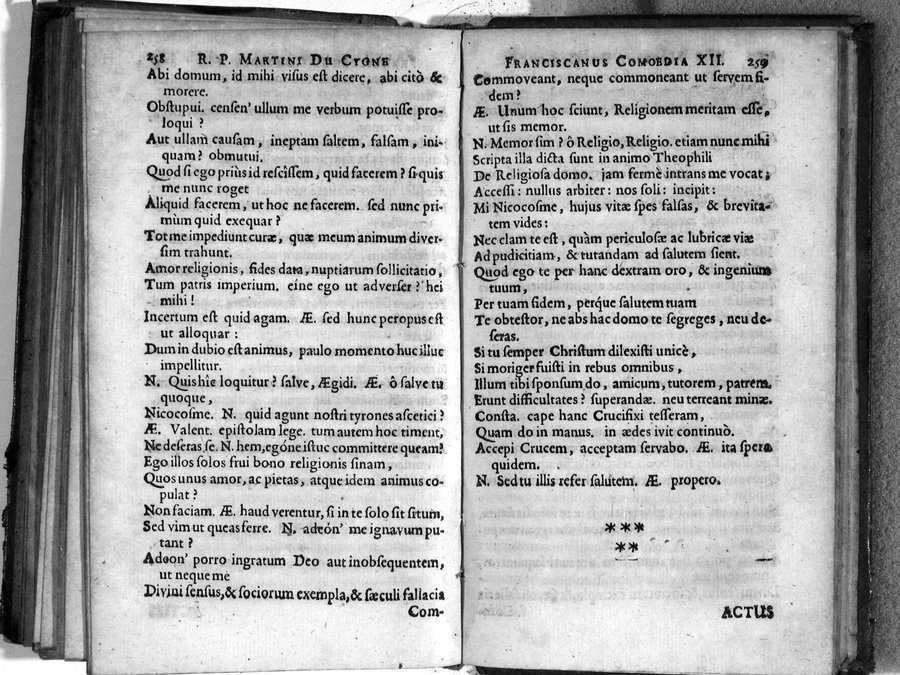 258 R. P. MARTINI DU CYGNE
Abi domum, id mihi visus est dicere, abi citò &
morere.
Obstupui. censen' ullum me verbum potuisse pro-
loqui ?
Aut ullam causam, ineptam saltem, falsam, ini-
quam? obmutui.
Quod si ego priùs id rescîssem, quid facerem? si quis
me nunc roget
Aliquid facerem, ut hoc ne facerem. sed nunc pri-
mùm quid exequar ?
Tot me impediunt curæ, quæ meum animum diver-
sim trahunt.
Amor religionis, fides data, nuptiarum sollicitatio,
Tum patris imperium. eíne ego ut adverser ? hei
mihi !
Incertum est quid agam. Æ. sed hunc peropus est
ut alloquar :
Dum in dubio est animus, paulo momento huc illuc
impellitur.
N. Quis hîc loquitur ? salve, Ægidi. Æ. ô salve tu
quoque,
Nicocosme. N. quid agunt nostri tyrones ascetici ?
Æ. Valent. epistolam lege. tum autem hoc timent,
Ne deseras se. N. hem, egóne istuc committere queam?
Ego illos solos frui bono religionis sinam,
Quos unus amor, ac pietas, atque idem animus co-
pulat ?
Non faciam. Æ. haud verentur, si in te solo sit situm,
Sed vim ut queas ferre. N. adeón' me ignavum pu-
tant ?
Adeon' porro ingratum Deo aut inobsequentem,
ut neque me
Divini sensus, & sociorum exempla, & sæculi fallacia
Com-
FRANCISCANUS COMOEDIA XII. 259
Commoveant, neque commoneant ut servem fi-
dem ?
Æ. Unum hoc sciunt, Religionem meritam esse,
ut sis memor.
N. Memor sim ? ô Religio, Religio. etiam nunc mihi
Scripta illa dicta sunt in animo Theophili
De Religiosa domo. jam fermè intrans me vocat ;
Accessi : nullus arbiter : nos soli : incipit :
Mi Nicocosme, hujus vitæ spes falsas, & brevita-
tem vides :
Nec clam te est, quàm periculosæ ac lubricæ viæ
Ad pudicitiam, & tutandam ad salutem sient.
Quod ego te per hanc dextram oro, & ingenium
tuum,
Per tuam fidem, perque salutem tuam
Te obtestor, ne abs hac domo te segreges, neu de-
seras.
Si tu semper Christum dilexisti unicè,
Si moriger fuisti in rebus omnibus,
Illum tibi sponsum do, amicum, tutorem, patrem.
Erunt difficultates ? superandæ. neu terreant minæ.
Consta. cape hanc Crucifixi tesseram,
Quam do in manus. in ædes ivit continuò.
Accepi Crucem, acceptam servabo. Æ. ita spero
quidem.
N. Sed tu illis refer salutem. Æ. propero.
***
**
ACTUS